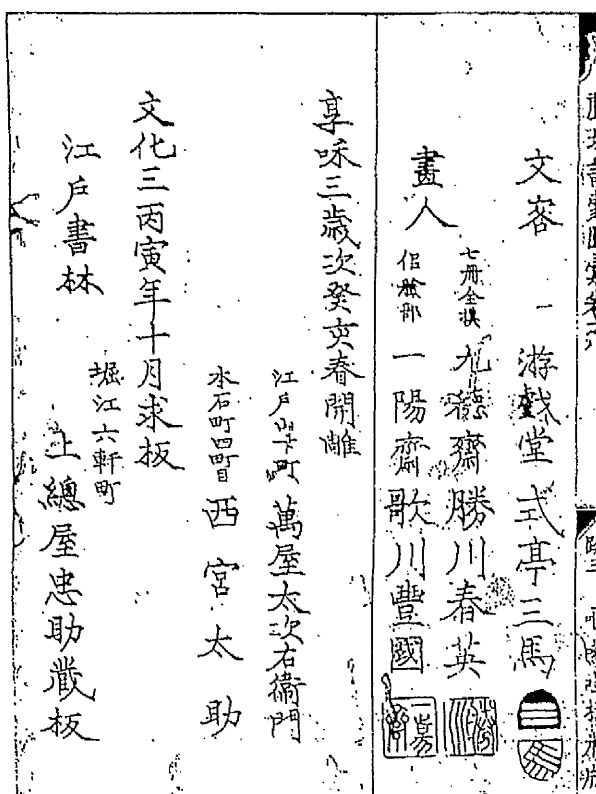 文客 游戯堂 式亭三馬
畫人
七冊全撰 九徳齋 勝川春英
似顔部 一陽齋 歌川豐國
享咊三歳次癸亥春開雕
江戸 町 萬屋太次右衛門
本石町四町目 西宮太助
文化三丙寅年十月求板
江戸書林
堀江六軒町
上總屋忠助藏板